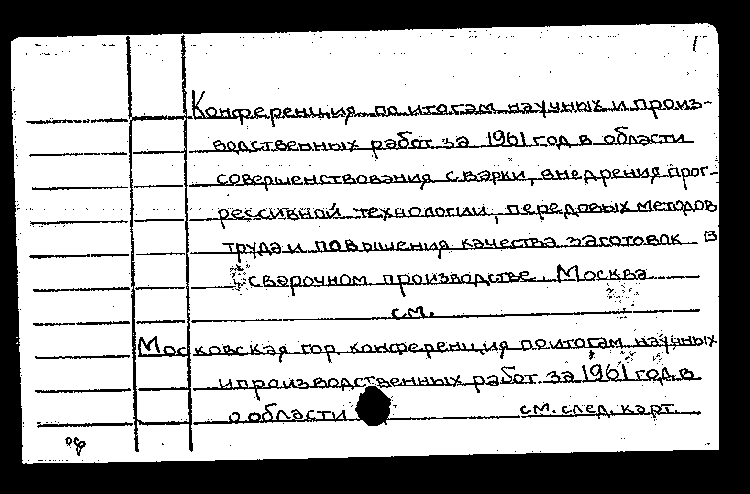 1
Конференция по итогам научных и произ-
водственных работ за 1961 год в области
совершенствования сварки, внедрения прог-
рессивной технологии, передовых методов
труда и повышения качества заготовок в
сварочном производстве. Москва
см.
Московская гор. конференция по итогам научных
и производственных работ за 1961 год в
о области
см. след. карт.